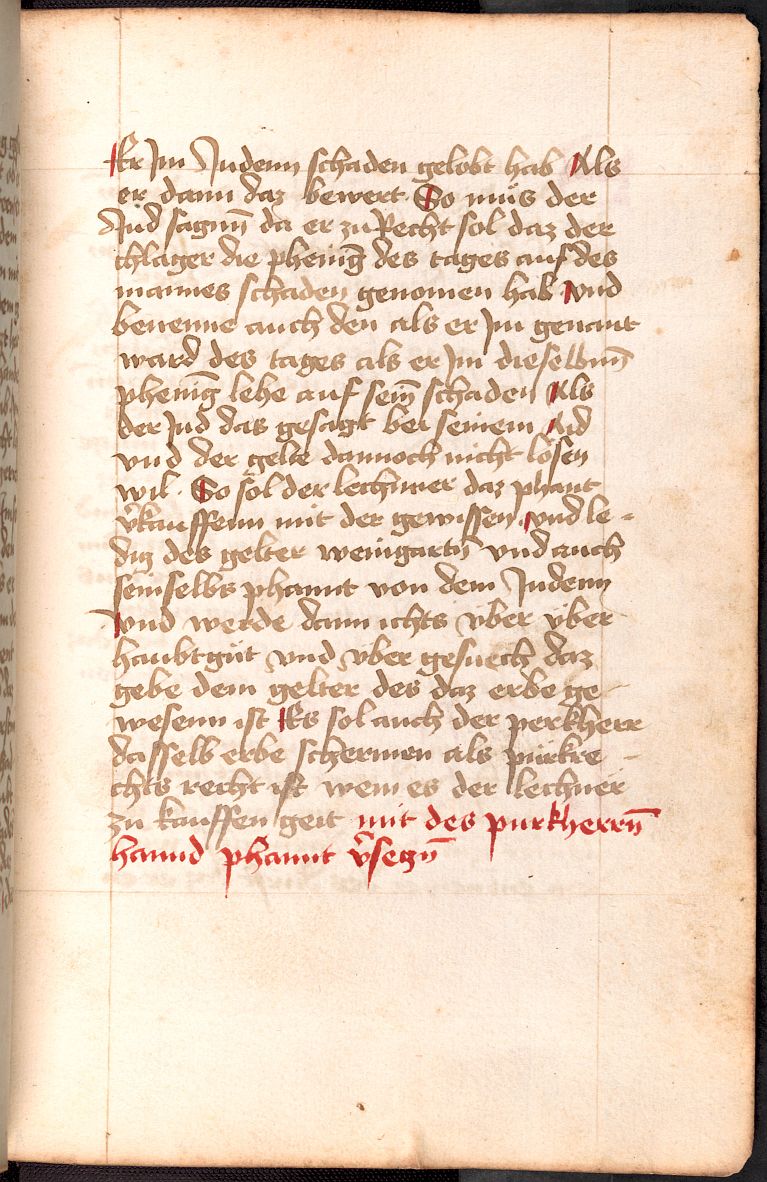 Er Im Judenn schaden gelobt hab Als
er dann daz bewert. So müs der
Jud sagnn̄ da er zu Recht sol daz der
chlager die phening̅ des tages auf des
mannes schaden genomen hab vnd
benenne auch den als er Jm genant
ward des tages als er Jm dieselbnn̄
phening̅ lehe auf sein̄ schaden Als
der Jud das gesagt bei seinem Aid
vnd der gelte dannoch nicht lösen
wil. So sol der lechnner daz phant
v̄kauffenn mit der gewissen vnd le-
dig des gelter weingartn̄ vnd auch
seinselbs phannt von dem Judenn
vnd werde dann ichts vber über
haubtgüt vnd vber gesuech daz
gebe dem gelter des daz erbe ge-
wesenn ist Es sol auch der perkherr
dasselb erbe schermen als pürkre-
chts recht ist wem es der lechner
zu kauffen geit mit des purkherrn̄
hannd phannt v̄seczn̄